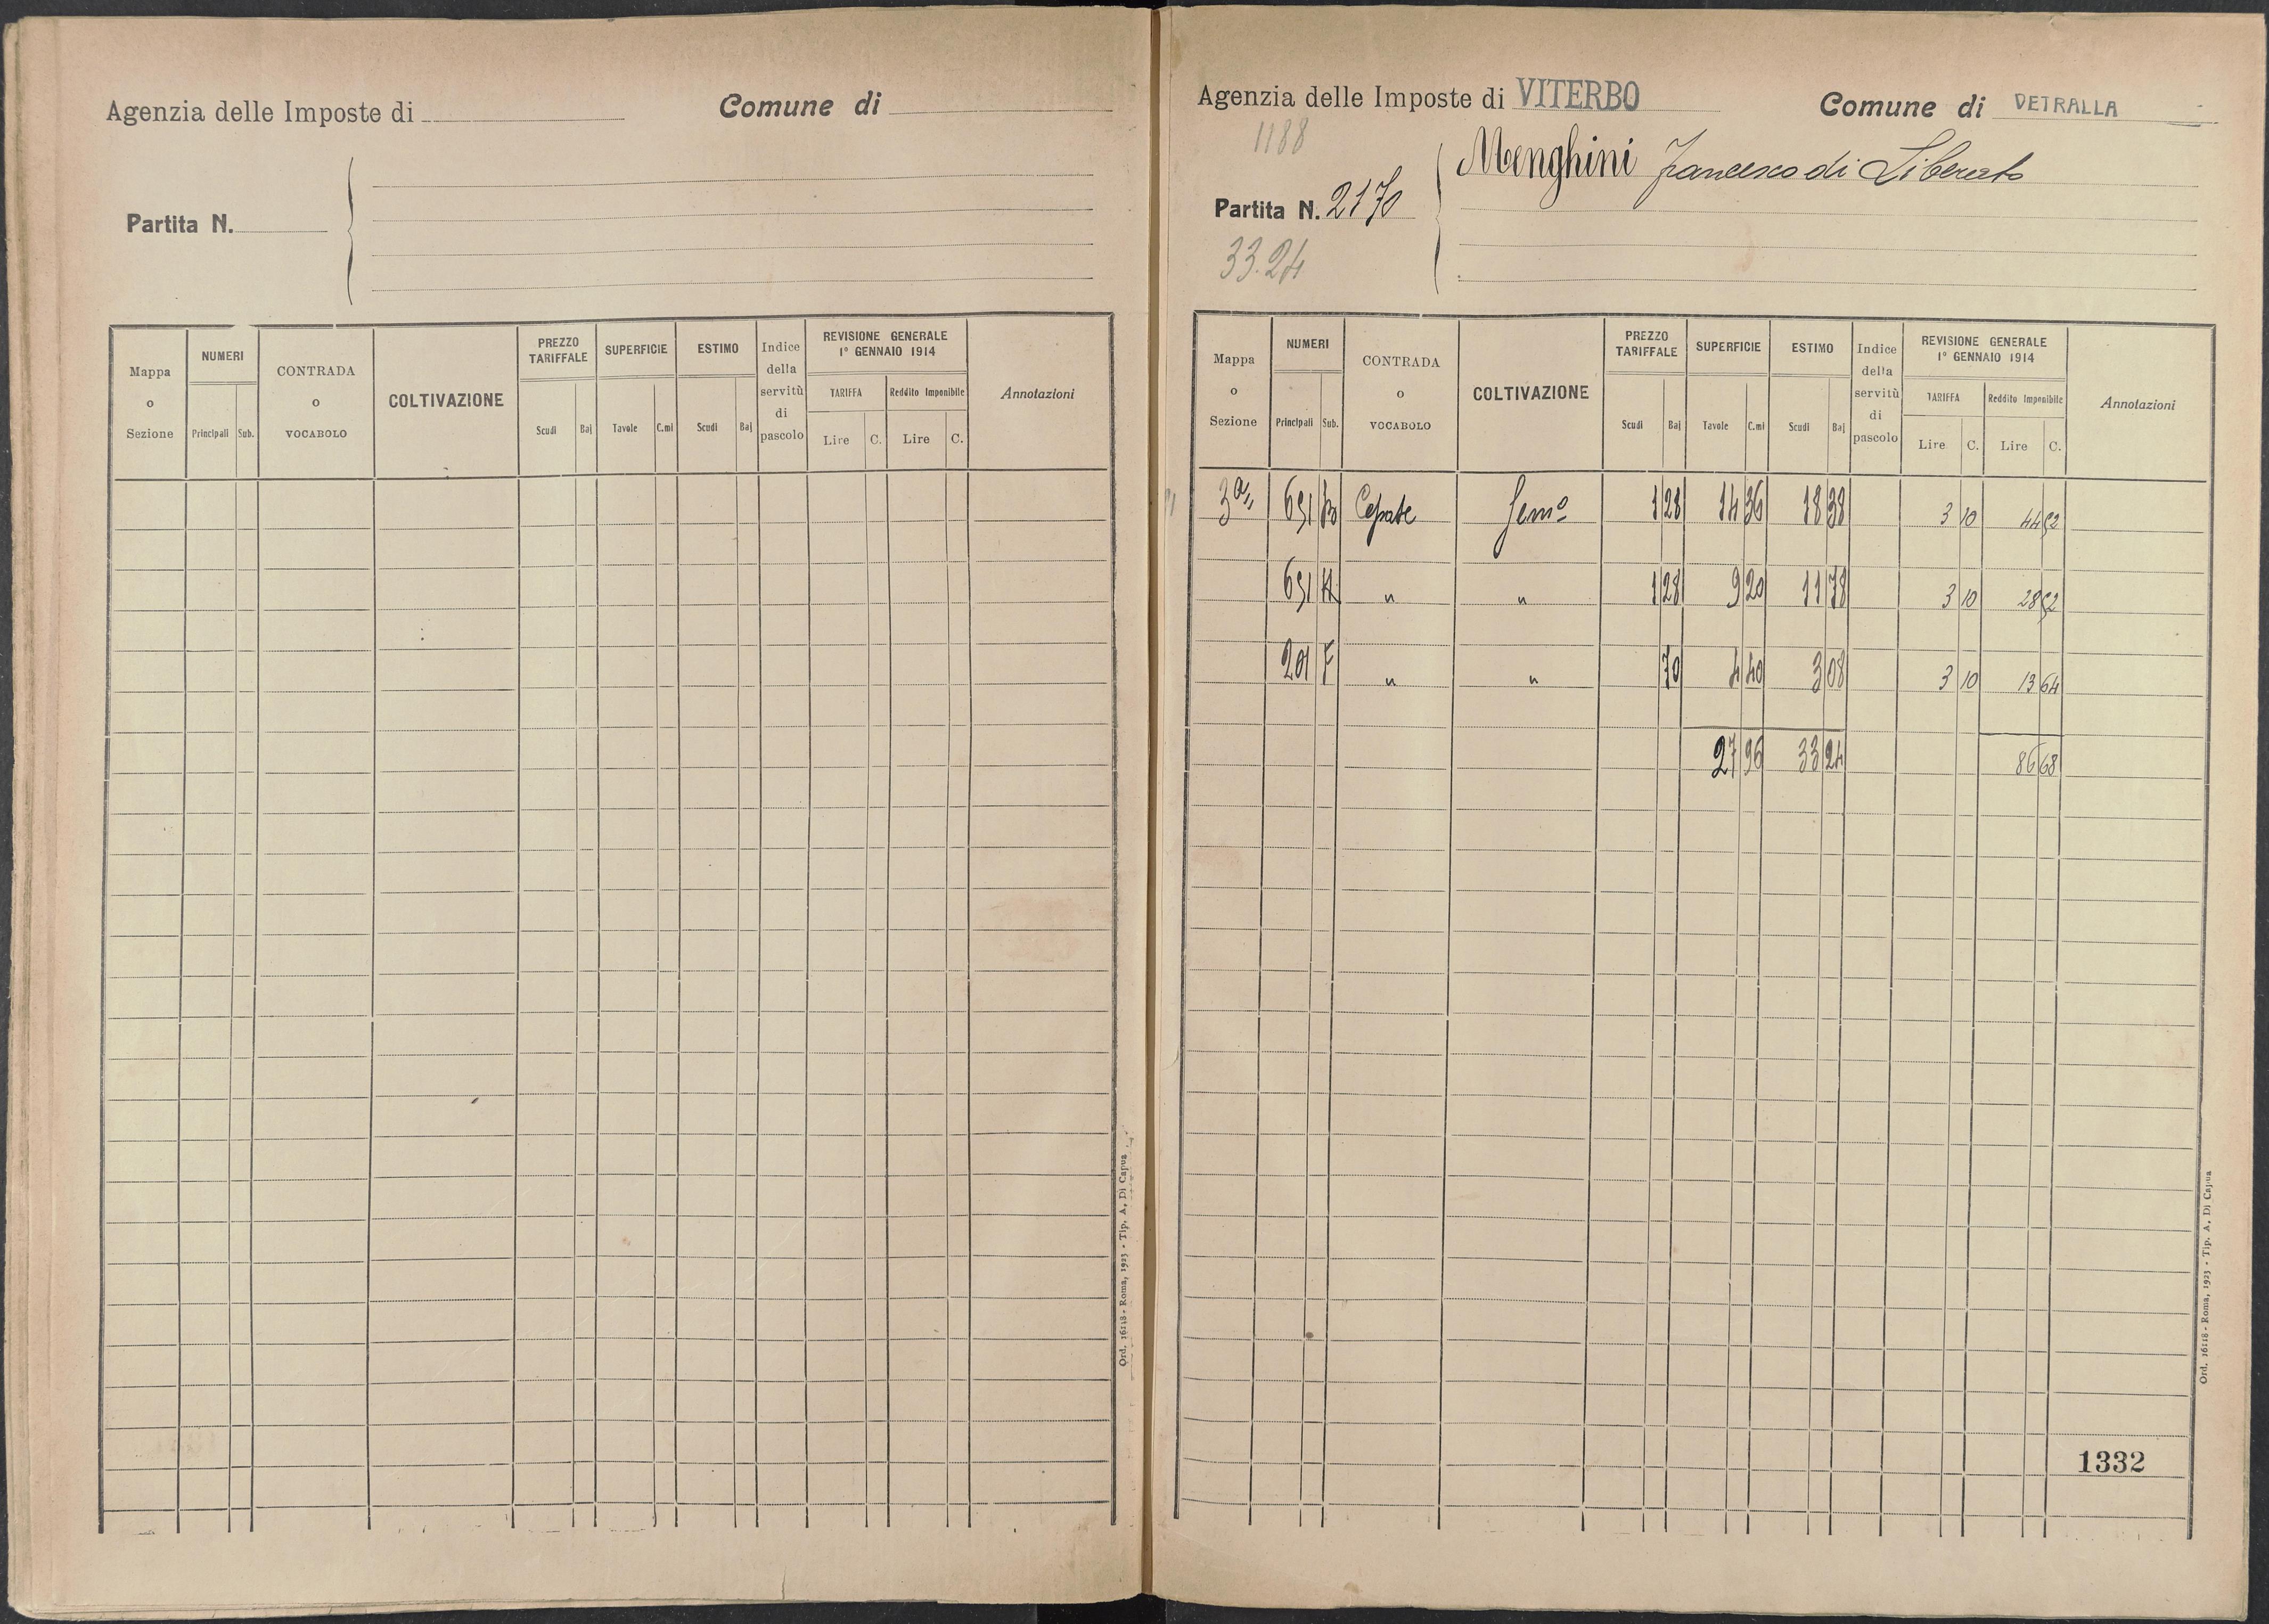 Agenzia delle Imposte di
Comune di
Partita N.
Mappa o Sezione
NUMERI
Principali Sub.
CONTRADA o VOCABOLO
COLTIVAZIONE
PREZZO TARIFFALE
Scudi Baj
SUPERFICIE
Tavole C.mi
ESTIMO
Scudi Baj
Indice della servitù di pascolo
REVISIONE GENERALE 1° GENNAIO 1914
TARIFFA Reddito Imponibile
Lire C. Lire C.
Annotazioni
Ord. 16118 - Roma, 1923 - Tip. A. Di Capua
Agenzia delle Imposte di VITERBO
Comune di VETRALLA
1188
Menghini Francesco di Liberato
Partita N. 2170
33.24
Mappa o Sezione
NUMERI
Principali Sub.
CONTRADA o VOCABOLO
COLTIVAZIONE
PREZZO TARIFFALE
Scudi Baj
SUPERFICIE
Tavole C.mi
ESTIMO
Scudi Baj
Indice della servitù di pascolo
REVISIONE GENERALE 1° GENNAIO 1914
TARIFFA Reddito Imponibile
Lire C. Lire C.
Annotazioni
3a 691 Semo 1 28 14 36 18 38 3 10 44 52
691 " " 1 28 9 20 11 78 3 10 28 52
201 F " " 70 4 40 3 08 3 10 13 64
27 96 33 24 86 68
1332
Ord. 16118 - Roma, 1923 - Tip. A. Di Capua